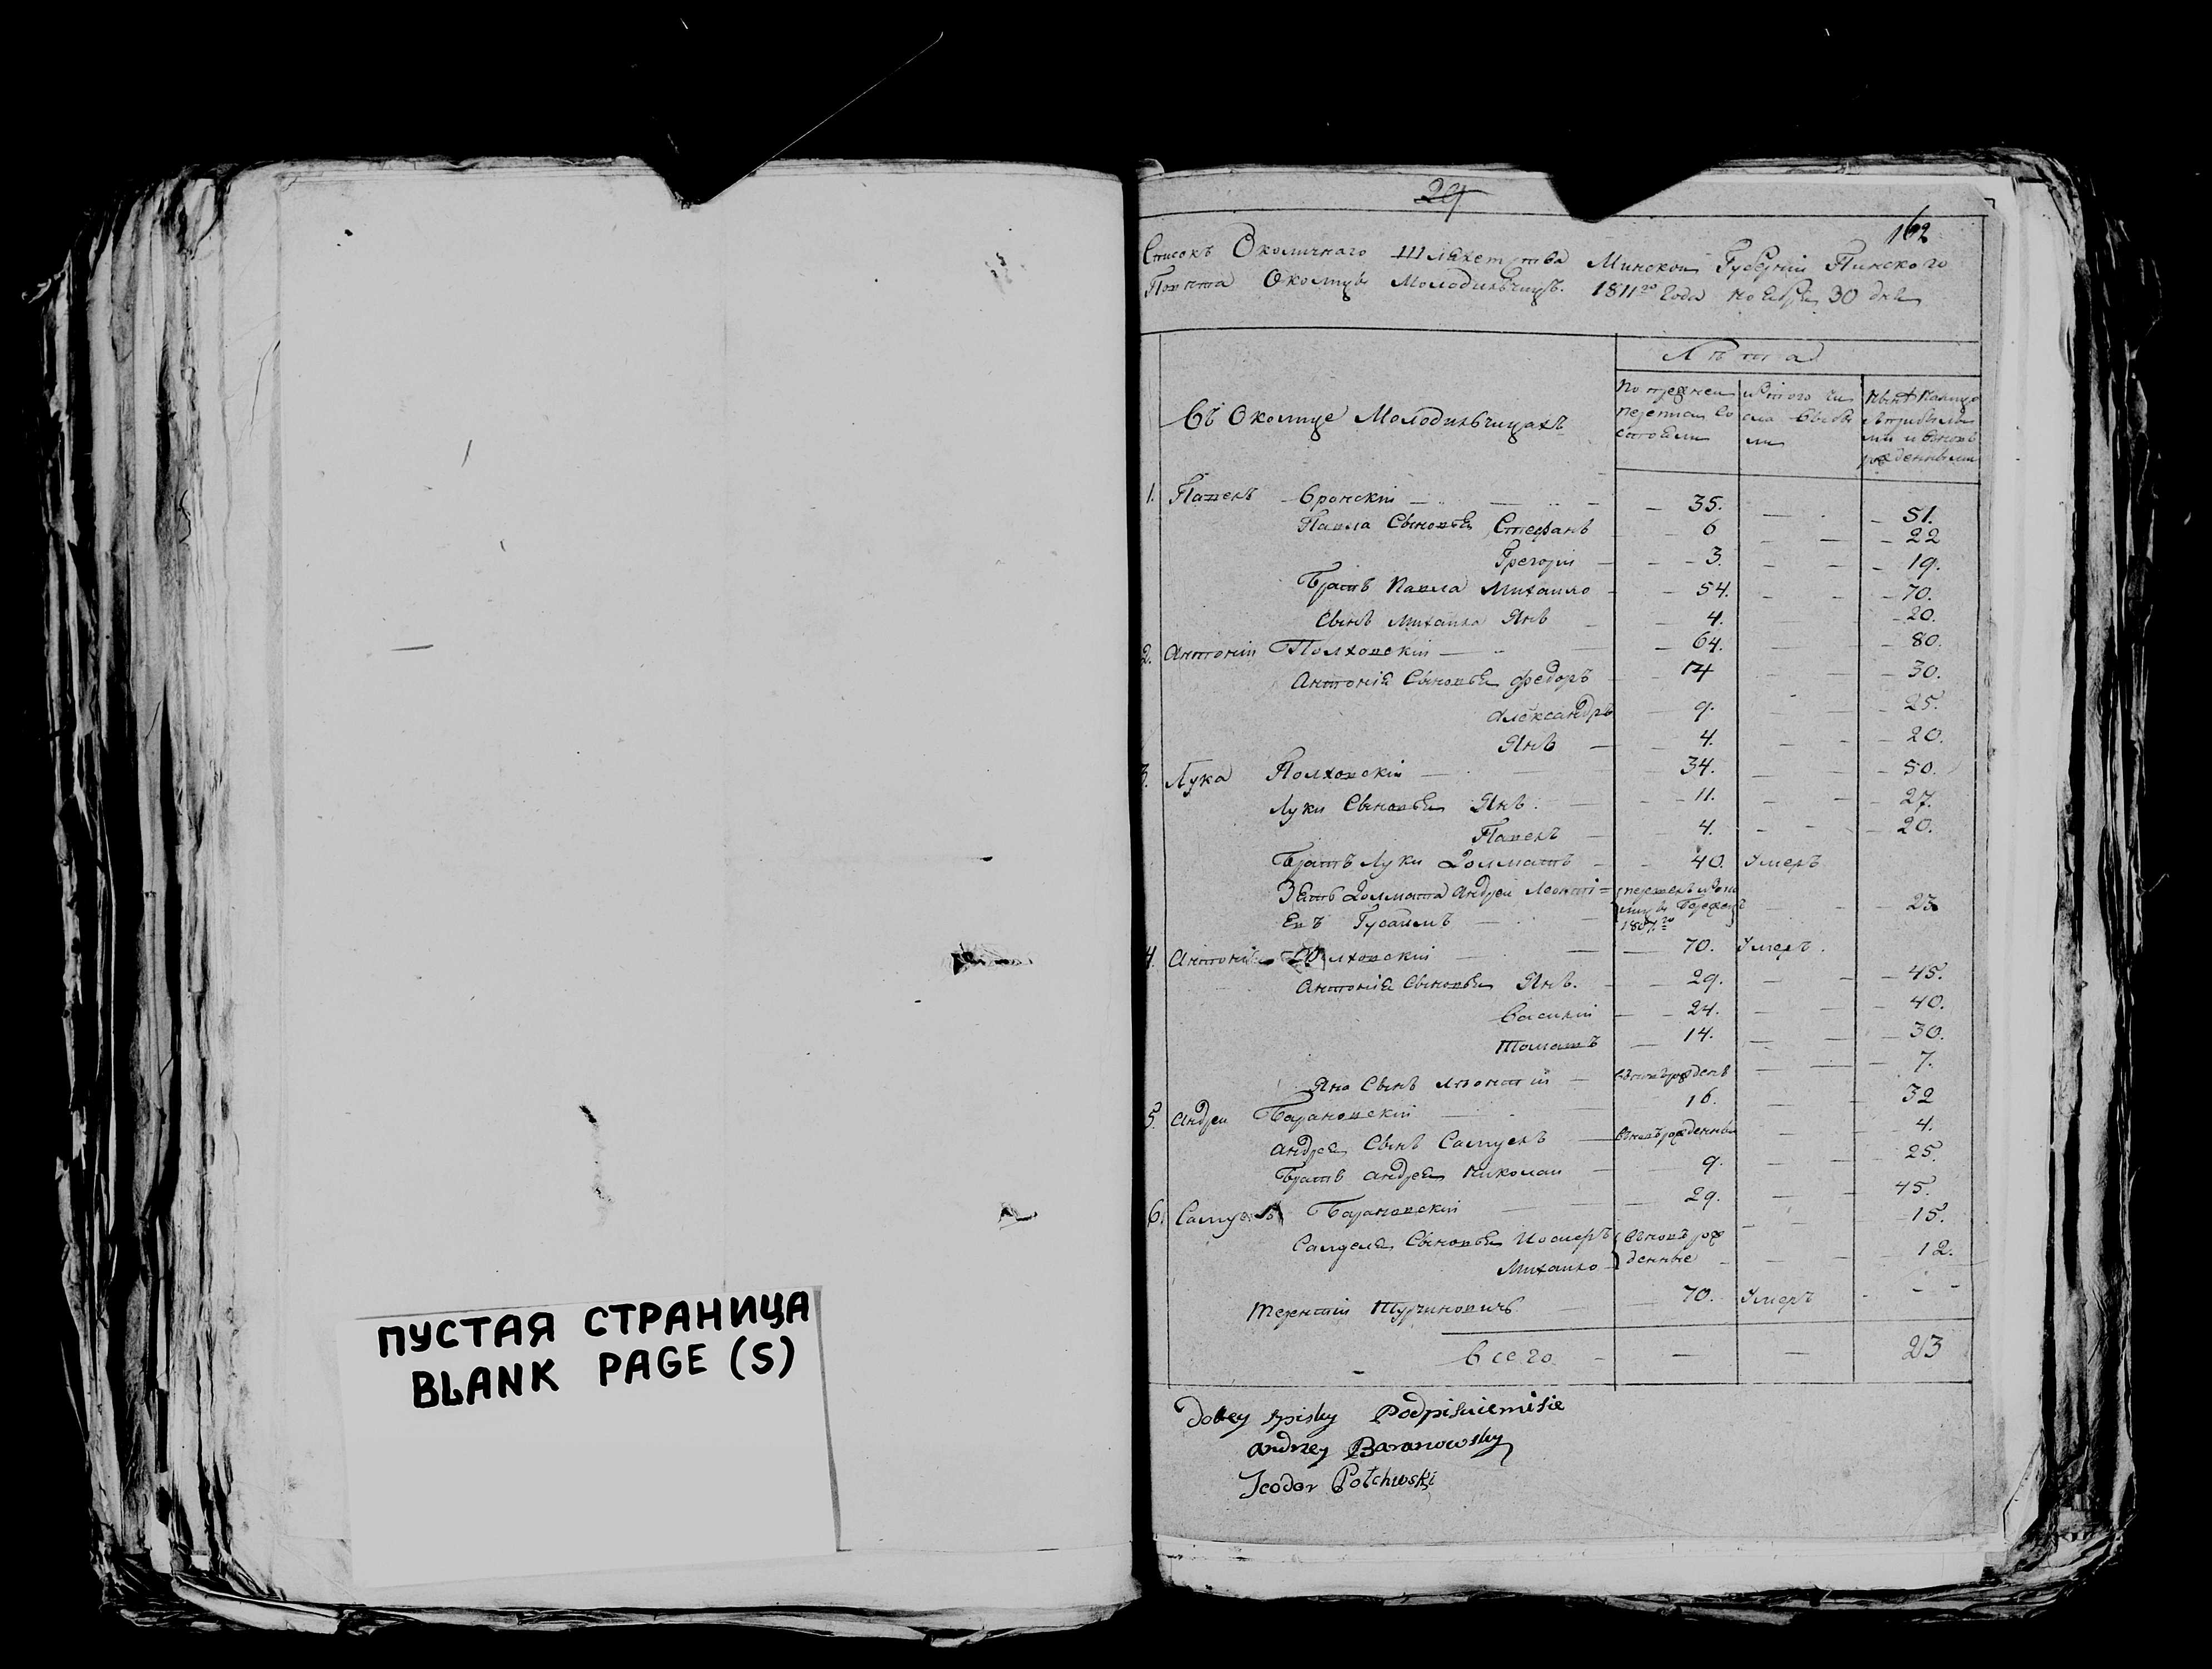 ПУСТАЯ СТРАНИЦА
BLANK PAGE (S)
29
162
Списокъ Околичнаго Шляхетства Минской Губерніи Пинского
Повѣта Околицы Молодильчицъ. 1811го Года ноября 30 дня
Лѣта
Въ Околице Молодильчицахъ
По прежней переписи состояли
изтого числа выбыли
рожденными
1. Павелъ Вронскій 35. 51.
Павла Сыновья Стефанъ 6 22
Грегорій 3. 19.
Братъ Павла Михайло 54. 70.
Сынъ Михайла Янъ 4. 20.
2. Антоній Полховскій 64. 80.
Антонія Сыновья Федоръ 14 30.
Александръ 9. 25.
Янъ 4. 20.
3. Лука Полховскій 34. 50.
Луки Сыновья Янъ. 11. 27.
Павелъ 4. 20.
Братъ Луки Долматъ 40. Умеръ
Зять Долмата Андрей Леонті=
евъ Гусаимъ 1807го 23
4. Антоній Полховскій 70. Умеръ.
Антонія Сыновья Янъ. 29. 45.
Василій 24. 40.
Томашъ 14. 30.
Яна Сынъ Леонтій вновь рожденъ 7.
5. Андрей Барановскій 16. 32
Андрея Сынъ Самуелъ вновь рожденны 4.
Братъ Андрея Николай 9. 25.
6. Самуелъ Барановскій 29. 45.
Самуеля Сыновья вновь рож 15.
Михайло денные 12.
Терентій Турчиновичъ 70. Умеръ
Всего 23
Dobey spisky Podpisuiemisie
Andrzey Baranowsky
Teodor Połchwski